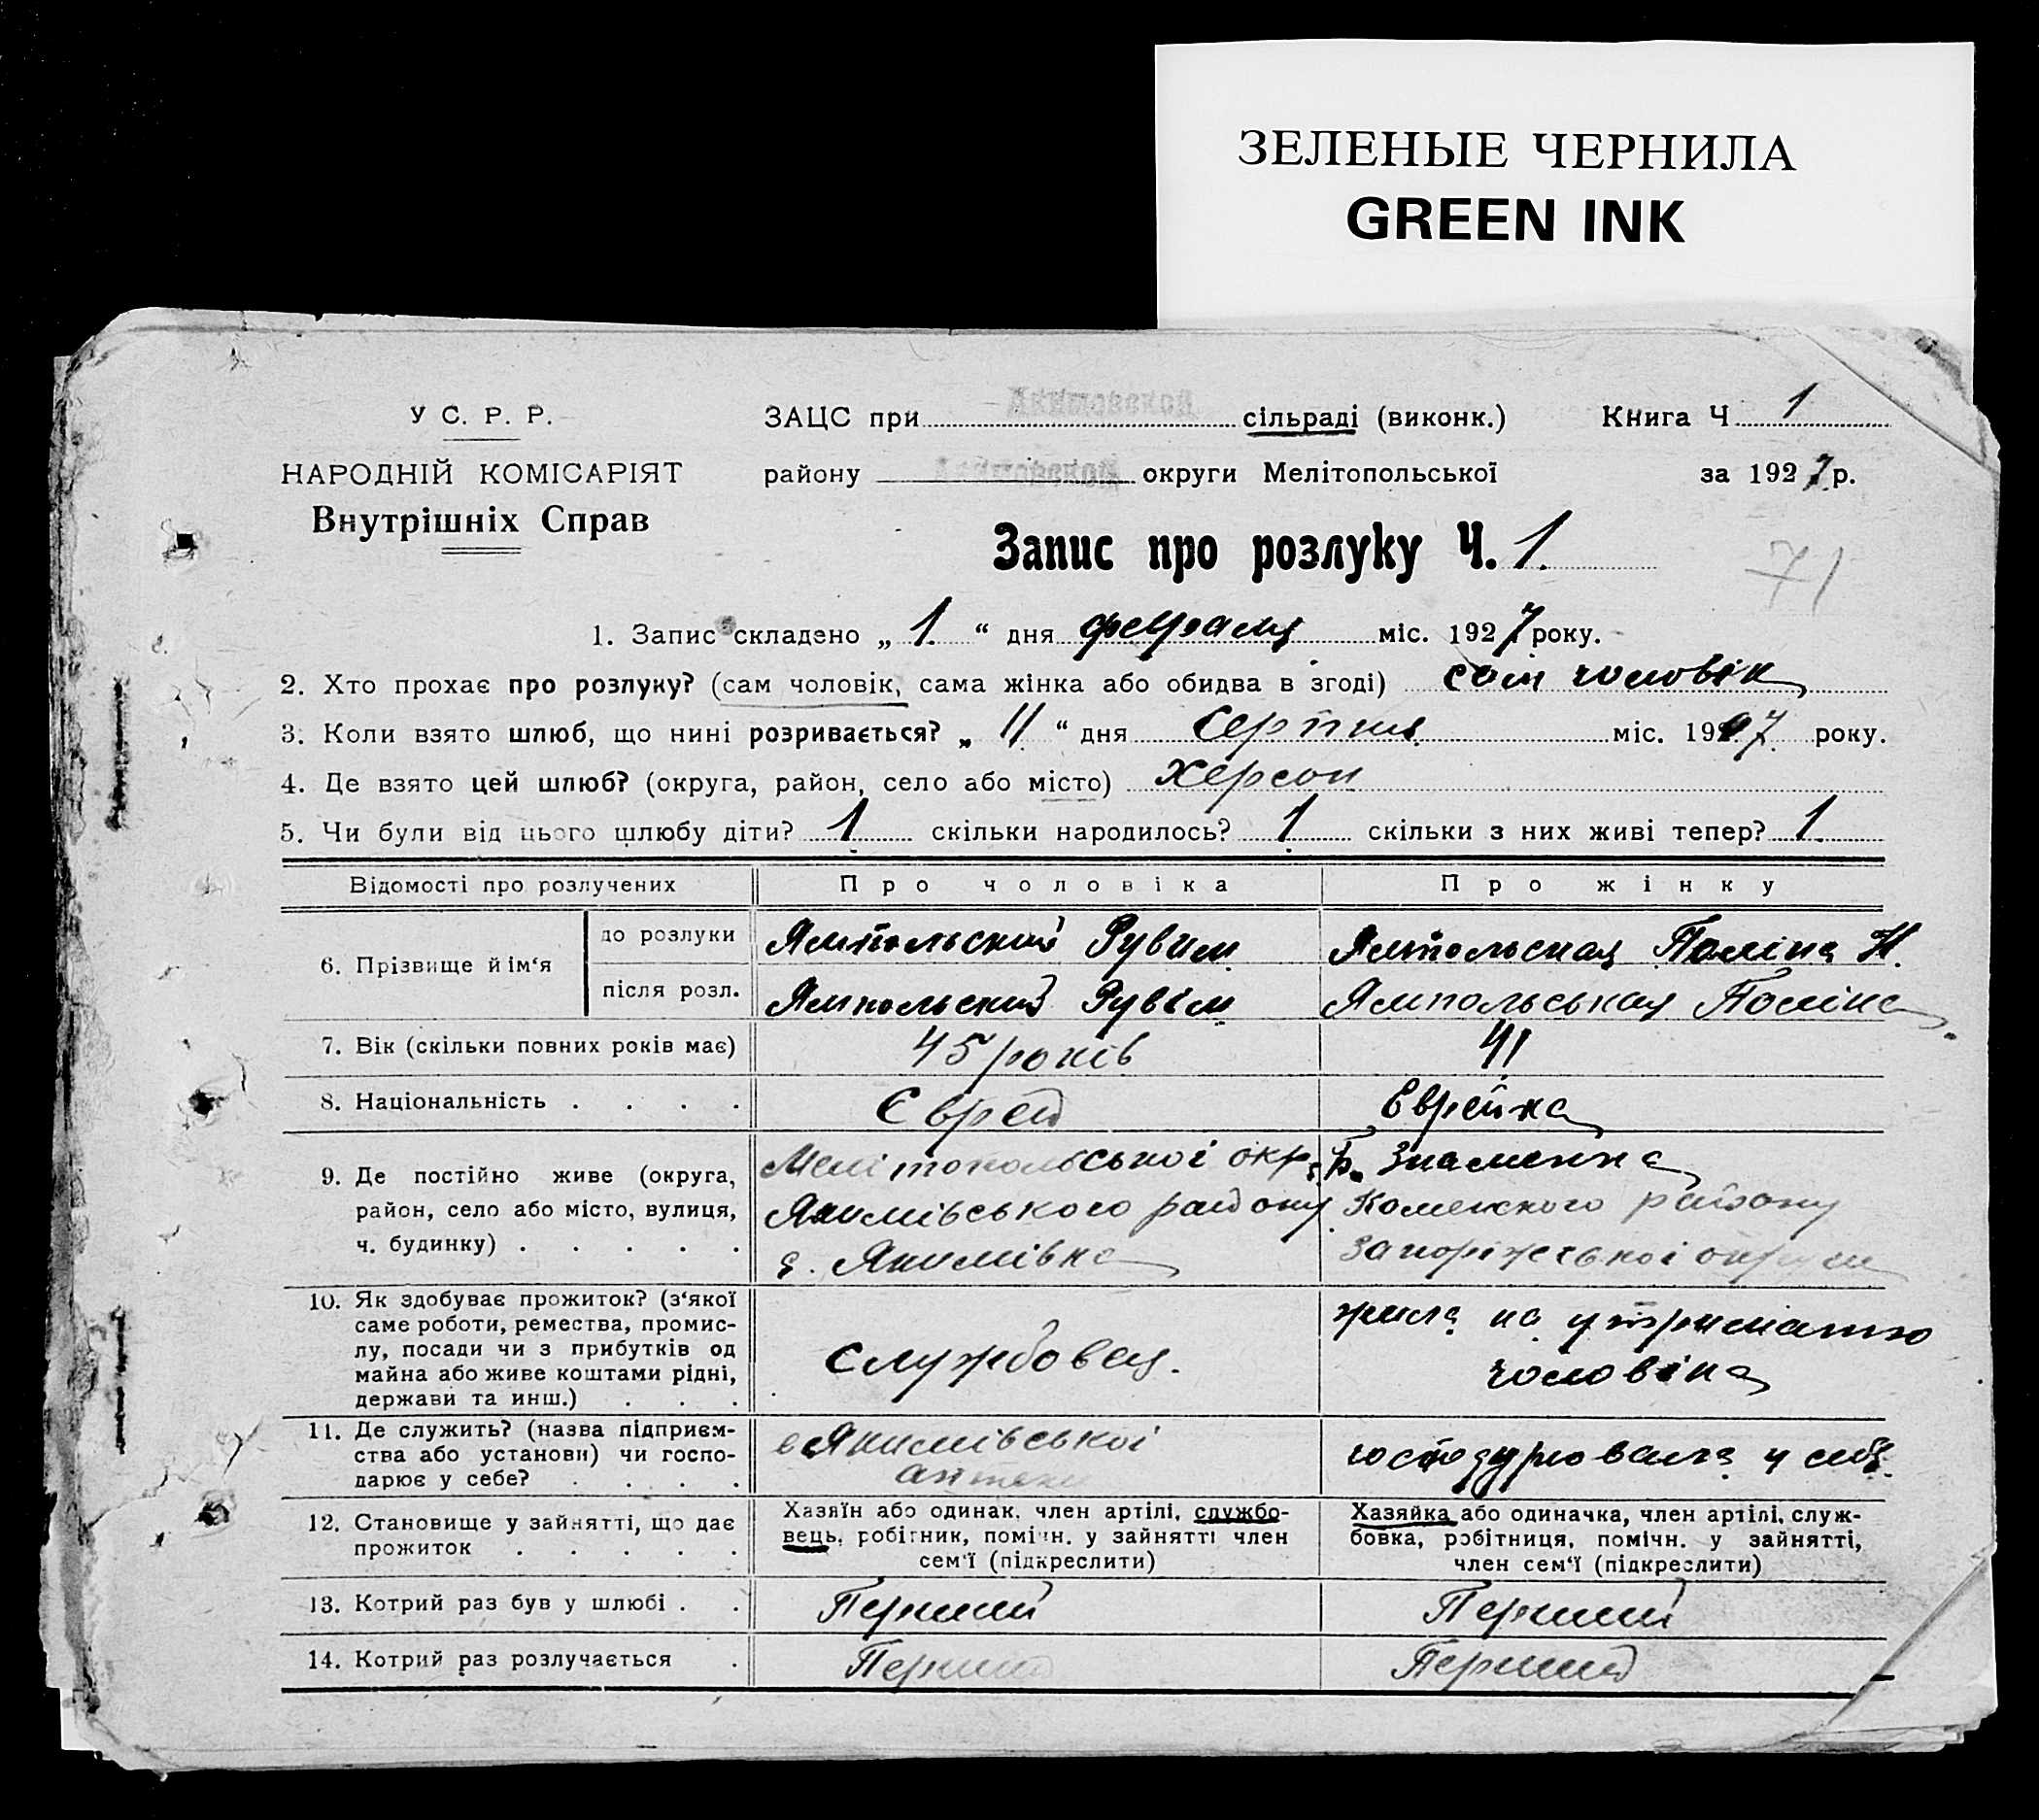 ЗЕЛЕНЫЕ ЧЕРНИЛА
GREEN INK
У С. Р. Р.
НАРОДНІЙ КОМІСАРІЯТ
Внутрішніх Справ
ЗАЦС при Акимовской сільраді (виконк.) Книга Ч 1
району Акимовской округи Мелітопольської за 1927 р.
Запис про розлуку Ч. 1.
71
1. Запис складено „ 1 “ дня февраля міс. 1927 року.
2. Хто прохає про розлуку? (сам чоловік, сама жінка або обидва в згоді) сам чоловік
3. Коли взято шлюб, що нині розривається? „ 11 “ дня серпня міс. 1907 року.
4. Де взято цей шлюб? (округа, район, село або місто) Херсон
5. Чи були від цього шлюбу діти? 1 скільки народилось? 1 скільки з них живі тепер? 1
Відомості про розлучених Про чоловіка Про жінку
6. Прізвище й ім‘я
до розлуки Ямпольский Рувим Ямпольская Поліна Н.
після розл. Ямпольский Рувім Ямпольськая Поліна
7. Вік (скільки повних років має) 45 років 41
8. Національність . . . . Єврей Еврейка
9. Де постійно живе (округа, район, село або місто, вулиця, ч. будинку) . . . . .
Мелітопольської окр.
Якимівського району
с. Якимівка
Б. Знаменка
Каменского району
Запоріжської округи
10. Як здобуває прожиток? (з‘якої
саме роботи, ремества, промис-
лу, посади чи з прибутків од
майна або живе коштами рідні,
держави та инш.) . . .
службовец.
жила на утриманню
чоловіка
11. Де служить? (назва підприєм-
ства або установи) чи госпо-
дарює у себе? . . . .
в Якимівської
аптеки
господарювала у себе.
12. Становище у зайнятті, що дає
прожиток . . . . .
Хазяїн або одинак, член артілі, службо-
вець, робітник, помічн. у зайнятті член
сем‘ї (підкреслити)
Хазяйка або одиначка, член артілі, служ-
бовка, робітниця, помічн. у зайнятті,
член сем‘ї (підкреслити)
13. Котрий раз був у шлюбі . . Перший Перший
14. Котрий раз розлучається . Перший Перший